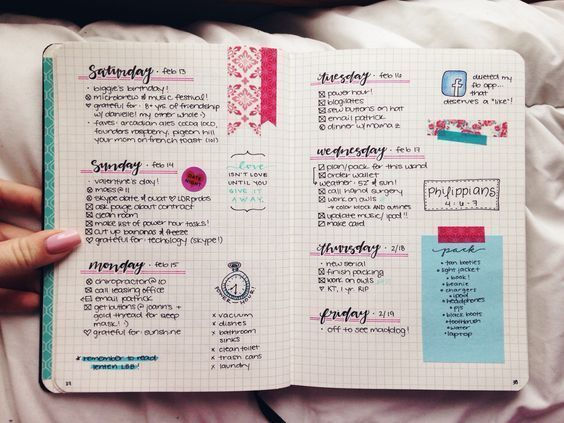 Saturday · feb 13
· biggie's birthday!
microbrew & music festival!
♡ grateful for: 8+ yrs of friendship
w/ danielle! my other whale :)
· faves: arcadian ales cocoa loco,
founders raspberry, pigeon hill
your mom on french toast (lol)
Sunday · feb 14
· valentine's day!
mass @ 11
skype date @ #LDRprobs
ask paige about contract
clean room
make list of power hour tasks!
cut up bananas & freeze
♡ grateful for: technology (skype!)
DATE NIGHT
love
ISN'T LOVE
UNTIL YOU
GIVE IT
AWAY.
monday · feb 15
chiropractor @ 10
call leasing office
email patrick
get buttons @ joann's +
gold thread for sleep
mask! :)
♡ grateful for: sunshine
* remember to read
lenten LBB!
POWER HOUR!
x vacuum
x dishes
x bathroom
sinks
x clean toilet
x trash cans
x laundry
tuesday · feb 16
power hour!
blogilates
sew buttons on hat
email patrick
dinner w/ mama z
f
deleted my
fb app...
that
deserves a "like"!
wednesday · feb 17
plan/pack for this wknd
order wallet
· weather: 52° & sun!
call hand surgery
work on owls
→ color wings and outlines
update music/ipod!!
make card
philippians
4:6-7
thursday · 2/18
· new serial
finish packing
work on owls
♡ KT, 1 yr. RIP
friday · 2/19
· off to see maddog!
pack
• tan booties
• light jacket
• book!
• beanie
• chargers
• ipod
• headphones
• pjs
• black boots
• toothbrush
• water
• laptop